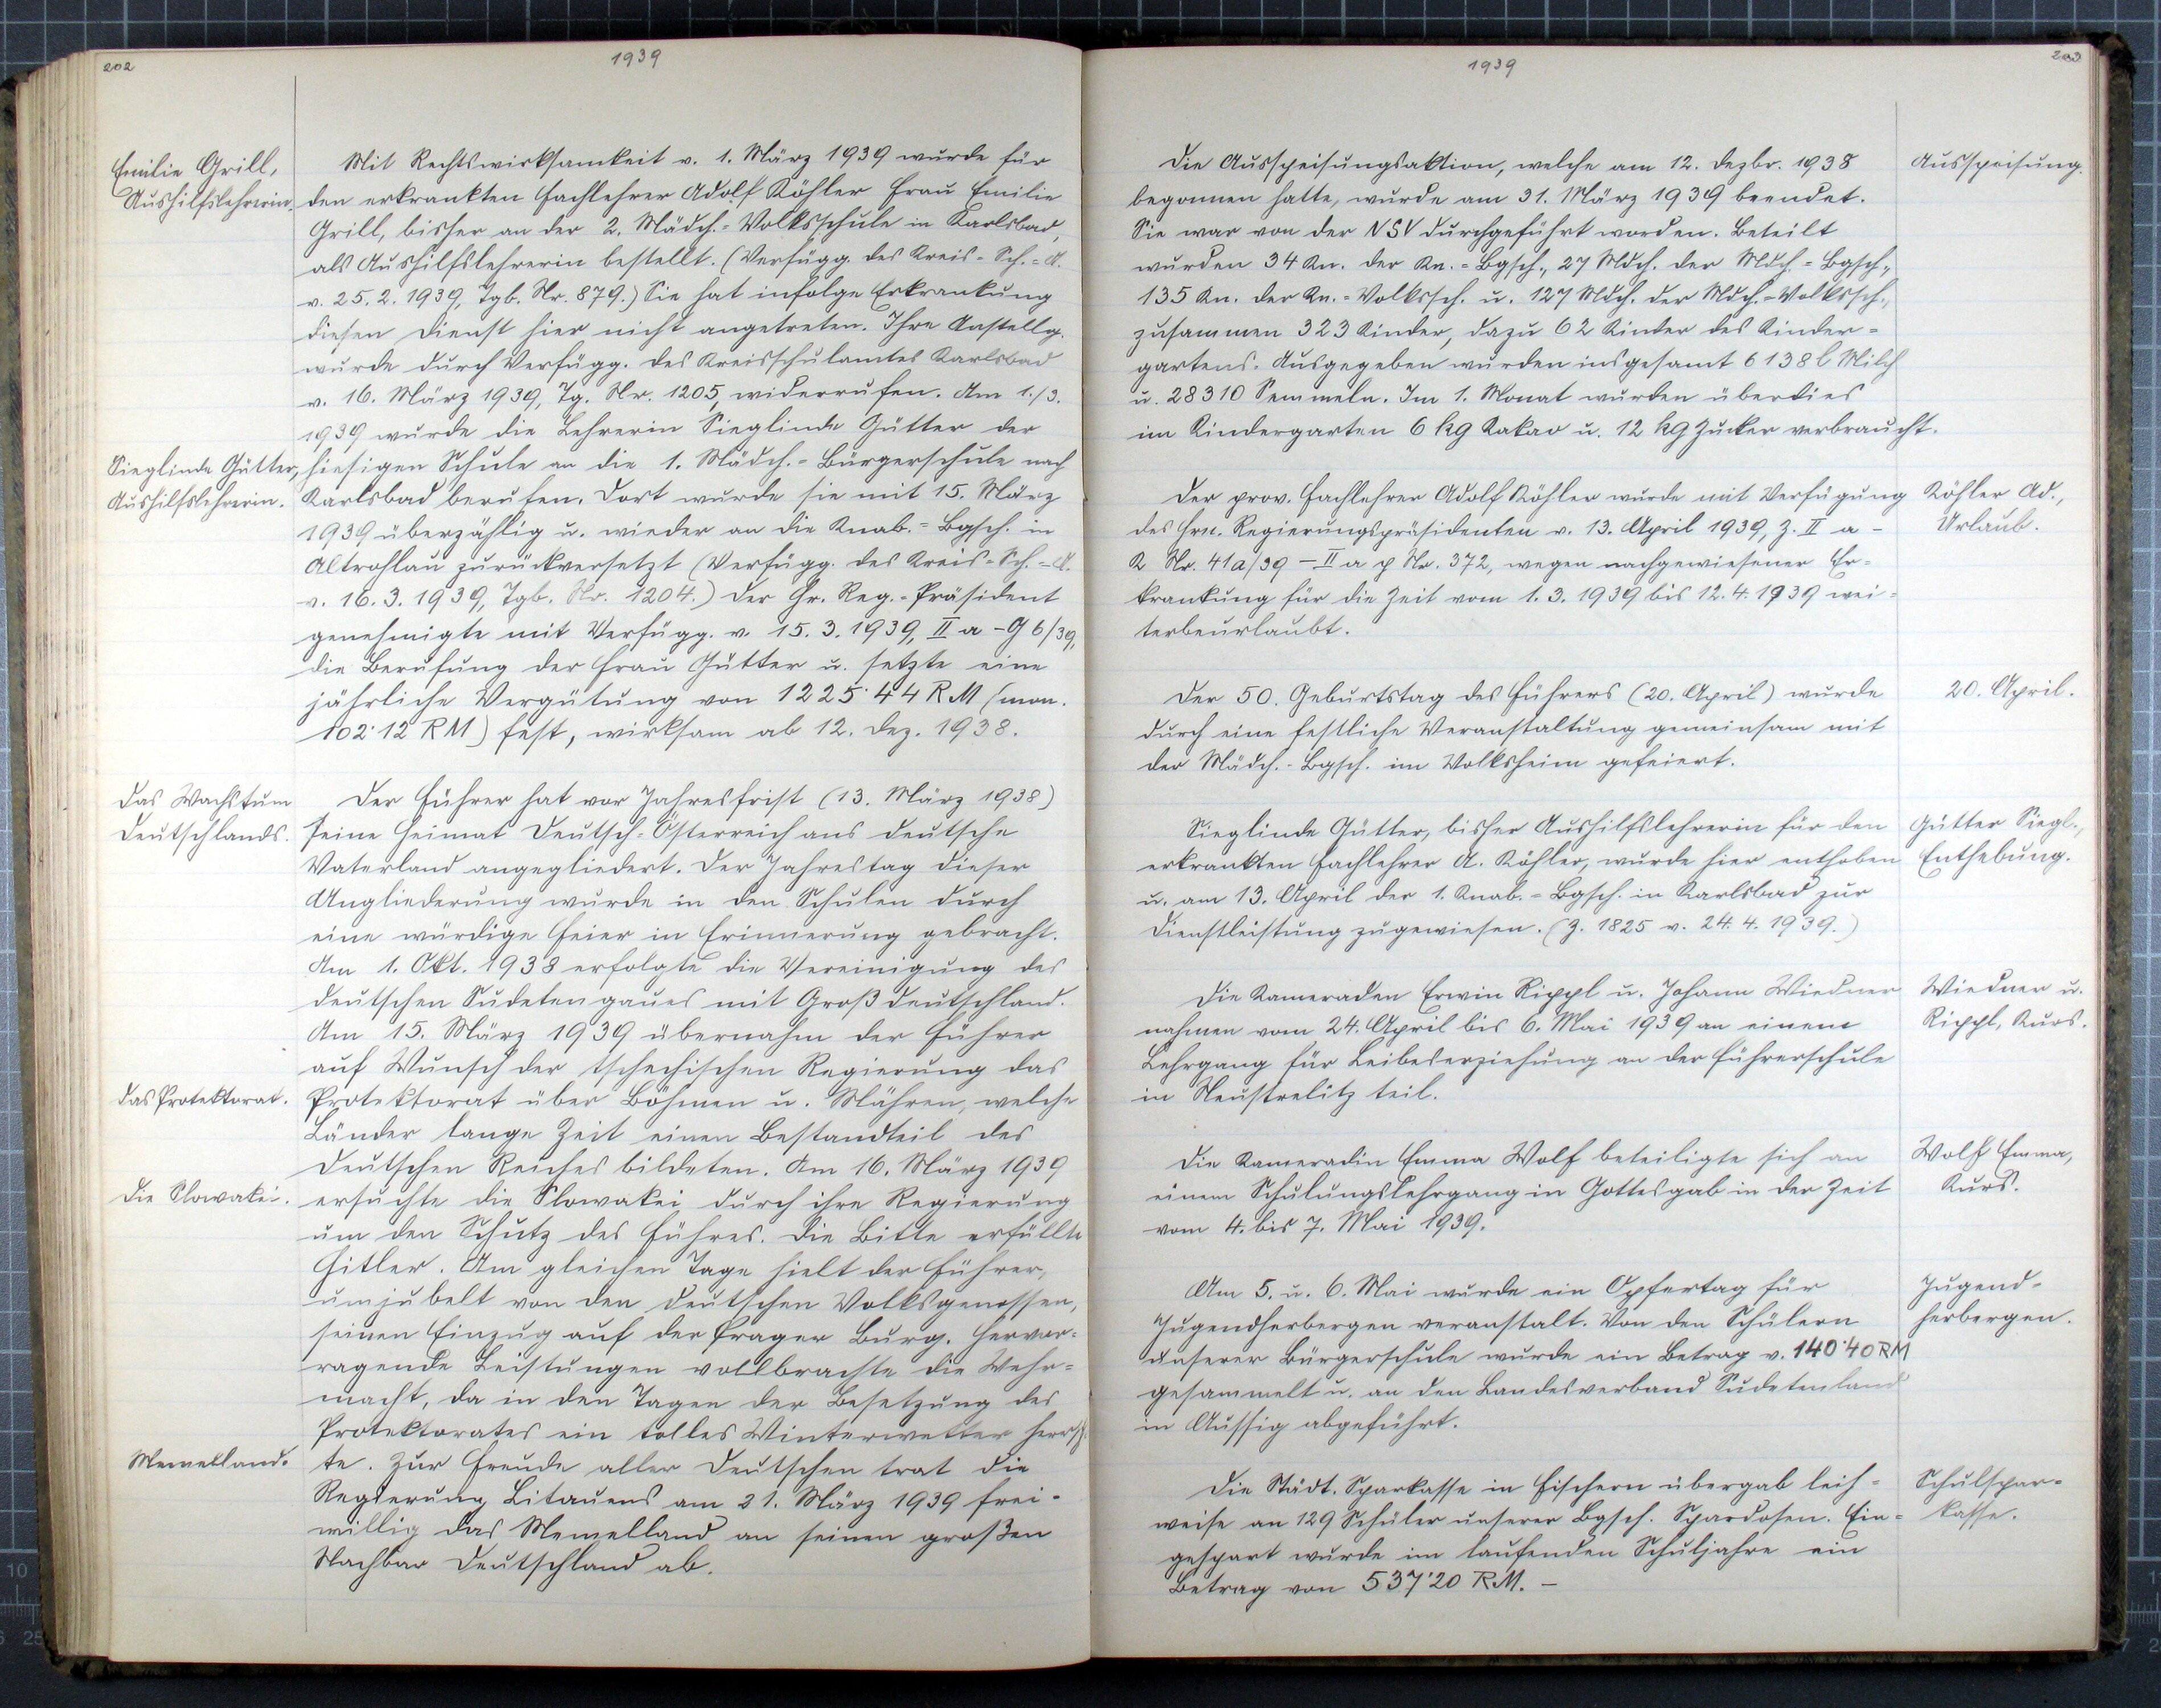 202
1939
Emilie Grill,
Aushilfslehrerin.
Mit Rechtswirksamkeit v. 1. März 1939 wurde für
den erkrankten Fachlehrer Adolf Köhler Frau Emilie
Grill, bisher an der 2. Mädch.-Volksschule in Karlsbad,
als Aushilfslehrerin bestellt. (Verfügg. des Kreis-Sch.-A.
v. 25.2.1939, Tgb. Nr. 879.) Sie hat infolge Erkrankung
diesen Dienst hier nicht angetreten. Ihre Anstellg.
wurde durch Verfügg. des Kreisschulamtes Karlsbad
v. 16. März 1939, Tg. Nr. 1205, widerrufen. Am 1./3.
1939 wurde die Lehrerin Sieglinde Gütter der
Sieglinde Gütter,
Aushilfslehrerin.
hiesigen Schule an die 1. Mädch.-Bürgerschule nach
Karlsbad berufen. Dort wurde sie mit 15. März
1939 überzählig u. wieder an die Knab.-Bgsch. in
Altrohlau zurückversetzt (Verfügg. des Kreis-Sch.-A.
v. 16.3.1939, Tgb. Nr. 1204.) Der Hr. Reg.-Präsident
genehmigte mit Verfügg. v. 15.3.1939, II a - G 6/39,
die Berufung der Frau Gütter u. setzte eine
jährliche Vergütung von 1225˙44 RM (mon.
102˙12 RM) fest, wirksam ab 12. Dez. 1938.
Das Wachstum
Deutschlands.
Der Führer hat vor Jahresfrist (13. März 1938)
seine Heimat Deutsch-Österreich ans deutsche
Vaterland angegliedert. Der Jahrestag dieser
Angliederung wurde in den Schulen durch
eine würdige Feier in Erinnerung gebracht.
Am 1. Okt. 1938 erfolgte die Vereinigung des
deutschen Sudetengaues mit Großdeutschland.
Am 15. März 1939 übernahm der Führer
auf Wunsch der tschechischen Regierung das
Das Protektorat.
Protektorat über Böhmen u. Mähren, welche
Länder lange Zeit einen Bestandteil des
Deutschen Reiches bildeten. Am 16. März 1939
Die Slowakei.
ersuchte die Slowakei durch ihre Regierung
um den Schutz des Führes. Die Bitte erfüllte
Hitler. Am gleichen Tage hielt der Führer,
umjubelt von den deutschen Volksgenossen,
seinen Einzug auf der Prager Burg. Hervor-
ragende Leistungen vollbrachte die Wehr-
macht, da in den Tagen der Besetzung des
Protektorates ein tolles Winterwetter herrsch-
Memelland.
te. Zur Freude aller Deutschen trat die
Regierung Litauens am 21. März 1939 frei-
willig das Memelland an seinen großen
Nachbar Deutschland ab.
203
1939
Ausspeisung.
Die Ausspeisungsaktion, welche am 12. Dezbr. 1938
begonnen hatte, wurde am 31. März 1939 beendet.
Sie war von der NSV durchgeführt worden. Beteilt
wurden 34 Kn. der Kn.-Bgsch., 27 Mdch. der Mdch.-Bgsch.,
135 Kn. der Kn.-Volkssch. u. 127 Mdch. der Mdch.-Volkssch.,
zusammen 323 Kinder, dazu 62 Kinder des Kinder-
gartens. Ausgegeben wurden insgesamt 6138 l Milch
u. 28310 Semmeln. Im 1. Monat wurden überdies
im Kindergarten 6 kg Kakao u. 12 kg Zucker verbraucht.
Köhler Ad.,
Urlaub.
Der prov. Fachlehrer Adolf Köhler wurde mit Verfügung
des Hrn. Regierungspräsidenten v. 13. April 1939, Z. II a -
K Nr. 41a/39 - II a p Nr. 372, wegen nachgewiesener Er-
krankung für die Zeit vom 1.3.1939 bis 12.4.1939 wei-
terbeurlaubt.
20. April.
Der 50. Geburtstag des Führers (20. April) wurde
durch eine festliche Veranstaltung gemeinsam mit
der Mädch.-Bgsch. im Volksheim gefeiert.
Gütter Siegl.,
Enthebung.
Sieglinde Gütter, bisher Aushilfslehrerin für den
erkrankten Fachlehrer A. Köhler, wurde hier enthoben
u. am 13. April der 1. Knab.-Bgsch. in Karlsbad zur
Dienstleistung zugewiesen. (Z. 1825 v. 24.4.1939.)
Wiedner u.
Rippl, Kurs.
Die Kameraden Erwin Rippl u. Johann Wiedner
nahmen vom 24. April bis 6. Mai 1939 an einem
Lehrgang für Leibeserziehung an der Führerschule
in Neustrelitz teil.
Wolf Emma,
Kurs.
Die Kameradin Emma Wolf beteiligte sich an
einem Schulungslehrgang in Gottesgab in der Zeit
vom 4. bis 7. Mai 1939.
Jugend-
herbergen.
Am 5. u. 6. Mai wurde ein Opfertag für
Jugendherbergen veranstalt. Von den Schülern
unserer Bürgerschule wurde ein Betrag v. 140˙40 RM
gesammelt u. an den Landesverband Sudetenland
in Aussig abgeführt.
Schulspar-
kasse.
Die Städt. Sparkasse in Fischern übergab leih-
weise an 129 Schüler unserer Bgsch. Spardosen. Ein-
gespart wurde im laufenden Schuljahre ein
Betrag von 537˙20 RM. -